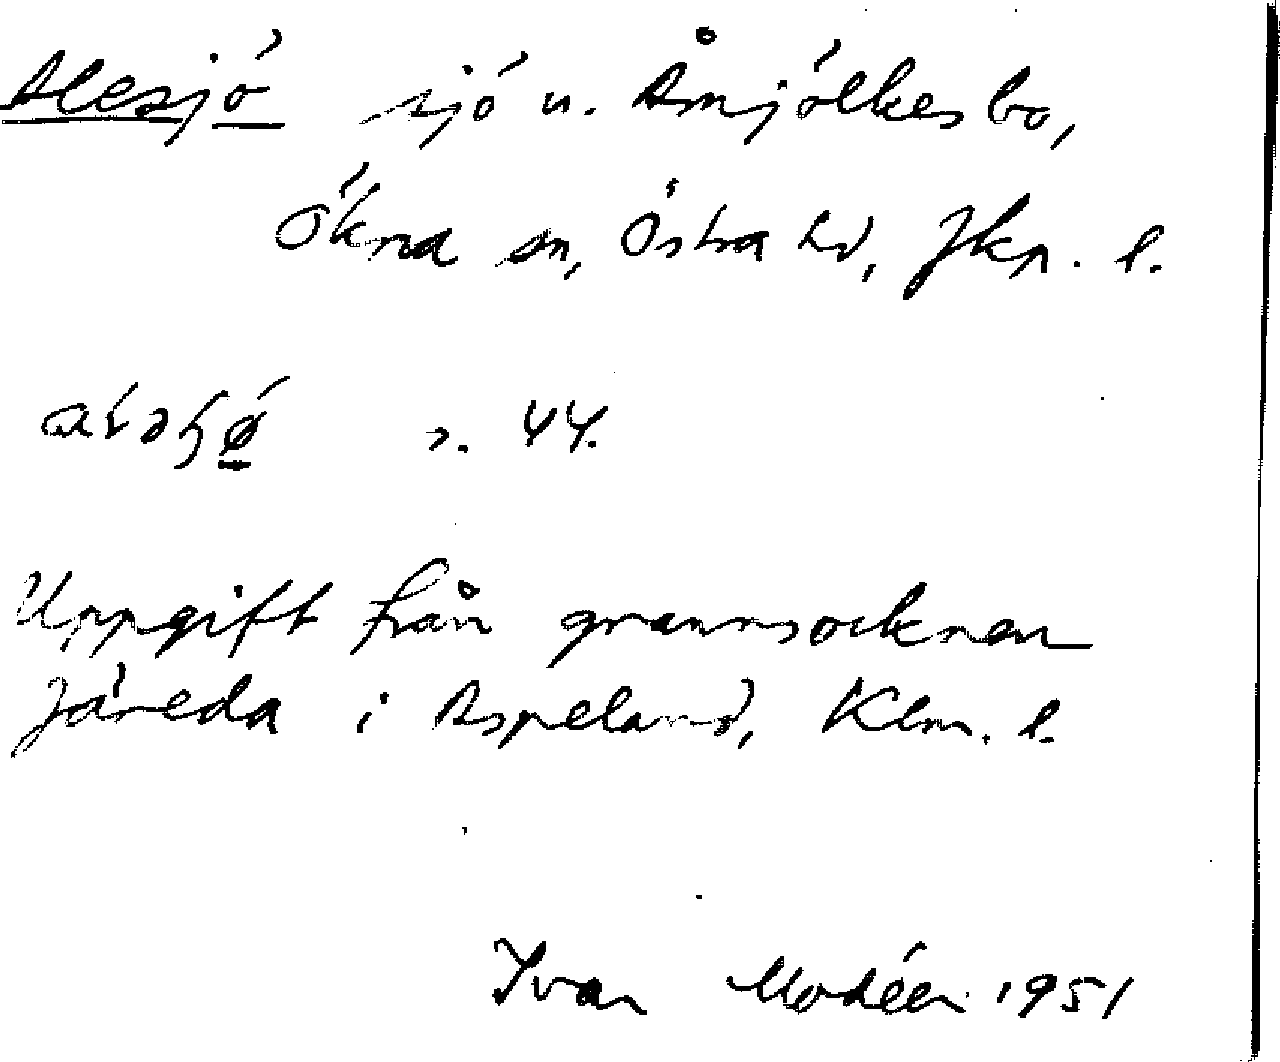 Alesjö sjö u. Åmjölkesbo,
Ökna sn, Östra hd, Jkp. l.
s. 44.
Uppgift från grannsocknen
Järeda i Aspeland, Klm. l.
Ivar Modéer 1951